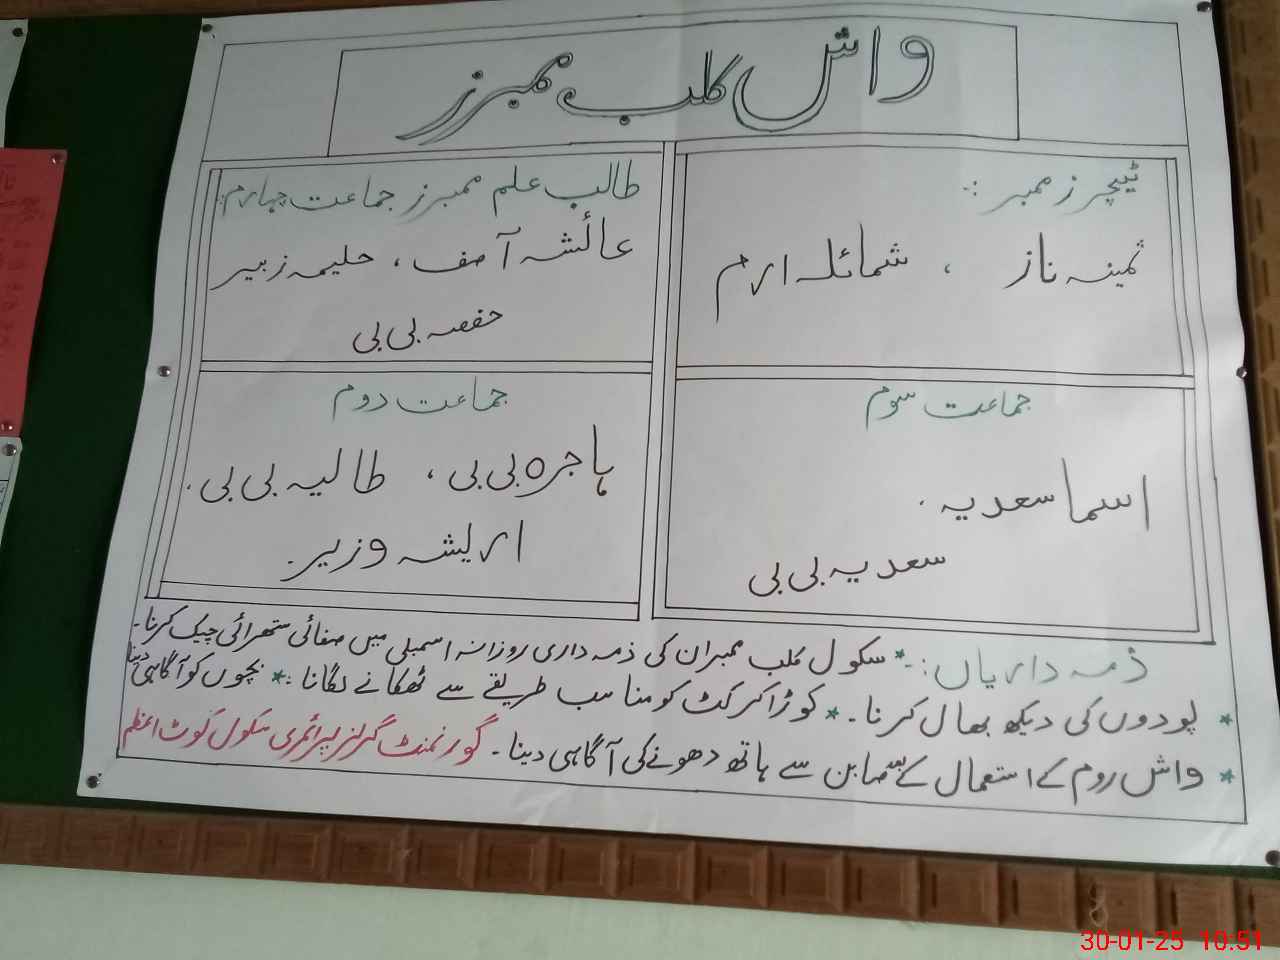 واش کلب ممبرز
ٹیچرز ممبر :-
ثمینہ ناز ، شمائلہ ارم
طالب علم ممبرز جماعت چہارم:
عائشہ آصف ، حلیمہ زبیر
حفصہ بی بی
جماعت سوم
اسما سعدیہ .
سعدیہ بی بی
جماعت دوم
ہاجرہ بی بی ، طالیہ بی بی .
اریشہ وزیر .
ذمہ داریاں :- * سکول کلب ممبران کی ذمہ داری روزانہ اسمبلی میں صفائی ستھرائی چیک کرنا ۔
* پودوں کی دیکھ بھال کرنا ۔ * کوڑا کرکٹ کو مناسب طریقے سے ٹھکانے لگانا : * بچوں کو آگاہی دینا
* واش روم کے استعمال کے بعد صابن سے ہاتھ دھونے کی آگاہی دینا ۔ گورنمنٹ گرلز پرائمری سکول کوٹ اعظم
30-01-25 10:51